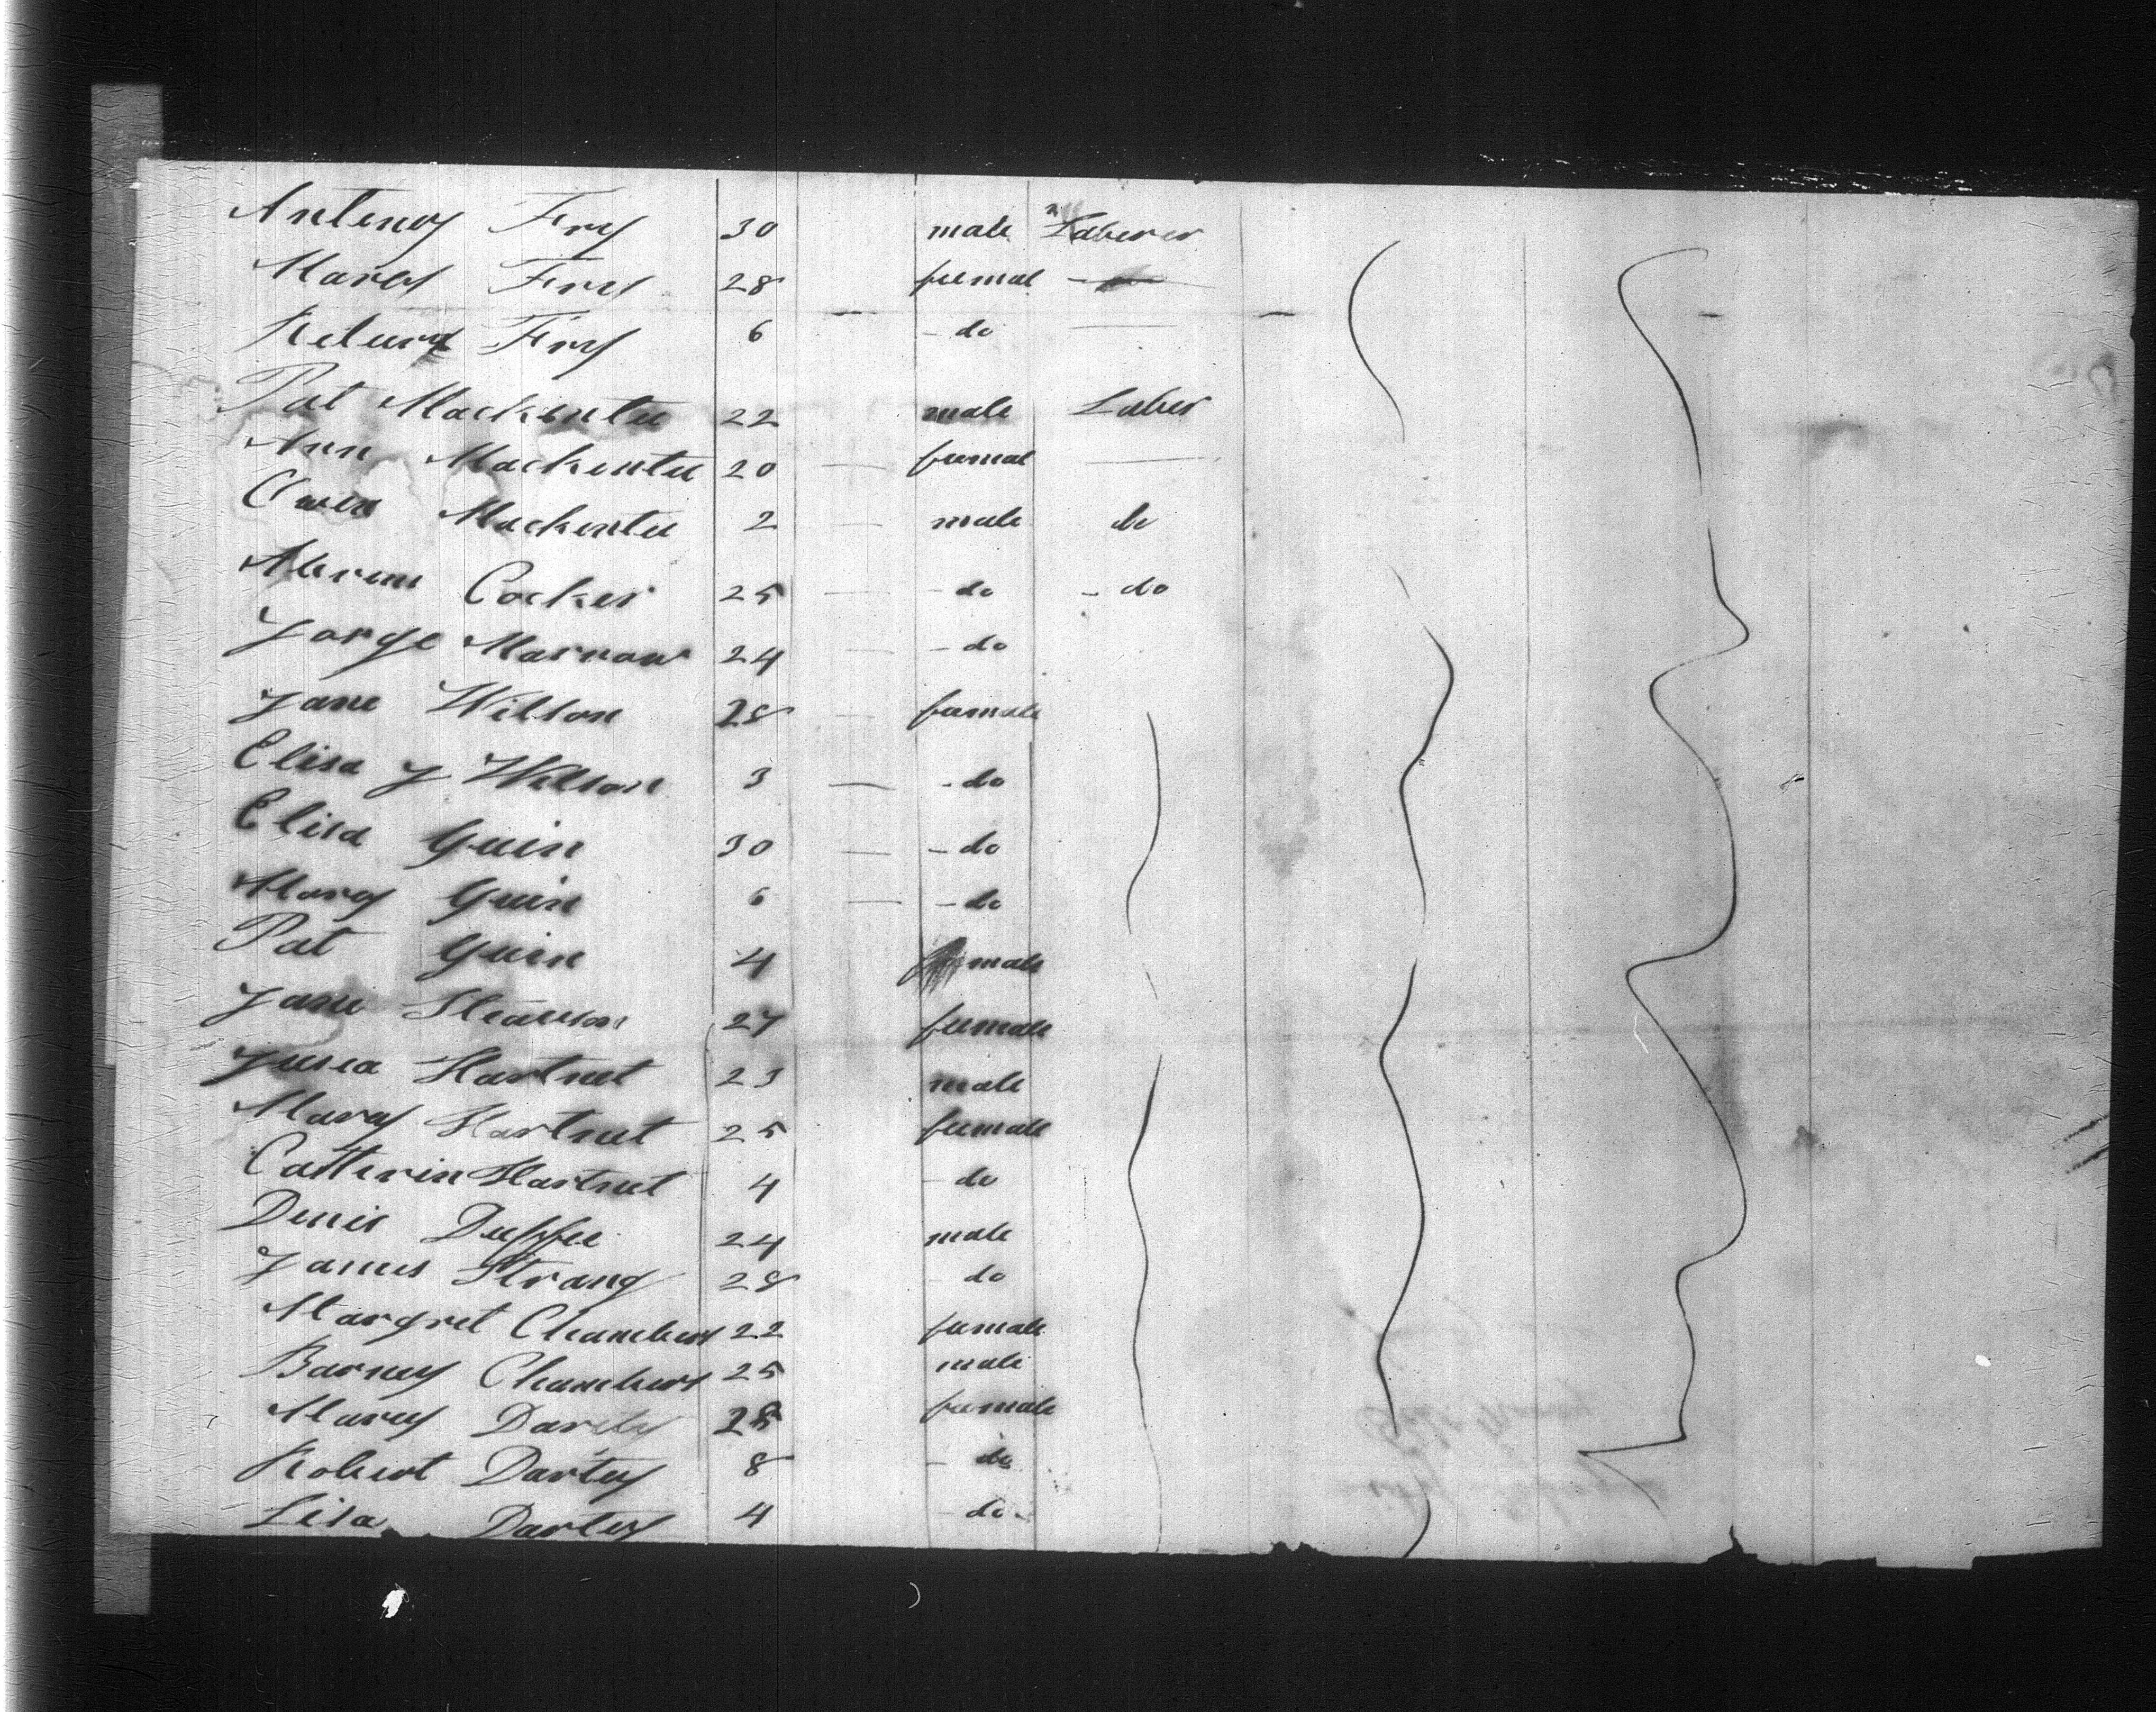 Anteney Fry 30 male Laberer
Marey Fry 28 feemal
Fry 6 - do
Pat Mackentee 22 male Laber
Ann Mackentee 20 — feemal
Owen Mackentee 2 — male do
Abram Cocker 25 — - do - do
Jorge Marrow 24 — - do
Jane Wilson 28 — feemale
Elisa J Wilson 3 — - do
Elisa Guin 30 — - do
Marey Guin 6 — - do
Pat Guin 4 male
Jane 27 feemale
Hartnet 23 male
Marey Hartnet 25 feemale
Catterin Hartnet 4 - do
Denis Duffee 24 male
James Strang 28 - do
Margret Chambers 22 feemale
Barney Chambers 25 male
Marey Dartey 28 feemale
Robert Dartey 8 - do
Lisa Dartey 4 - do